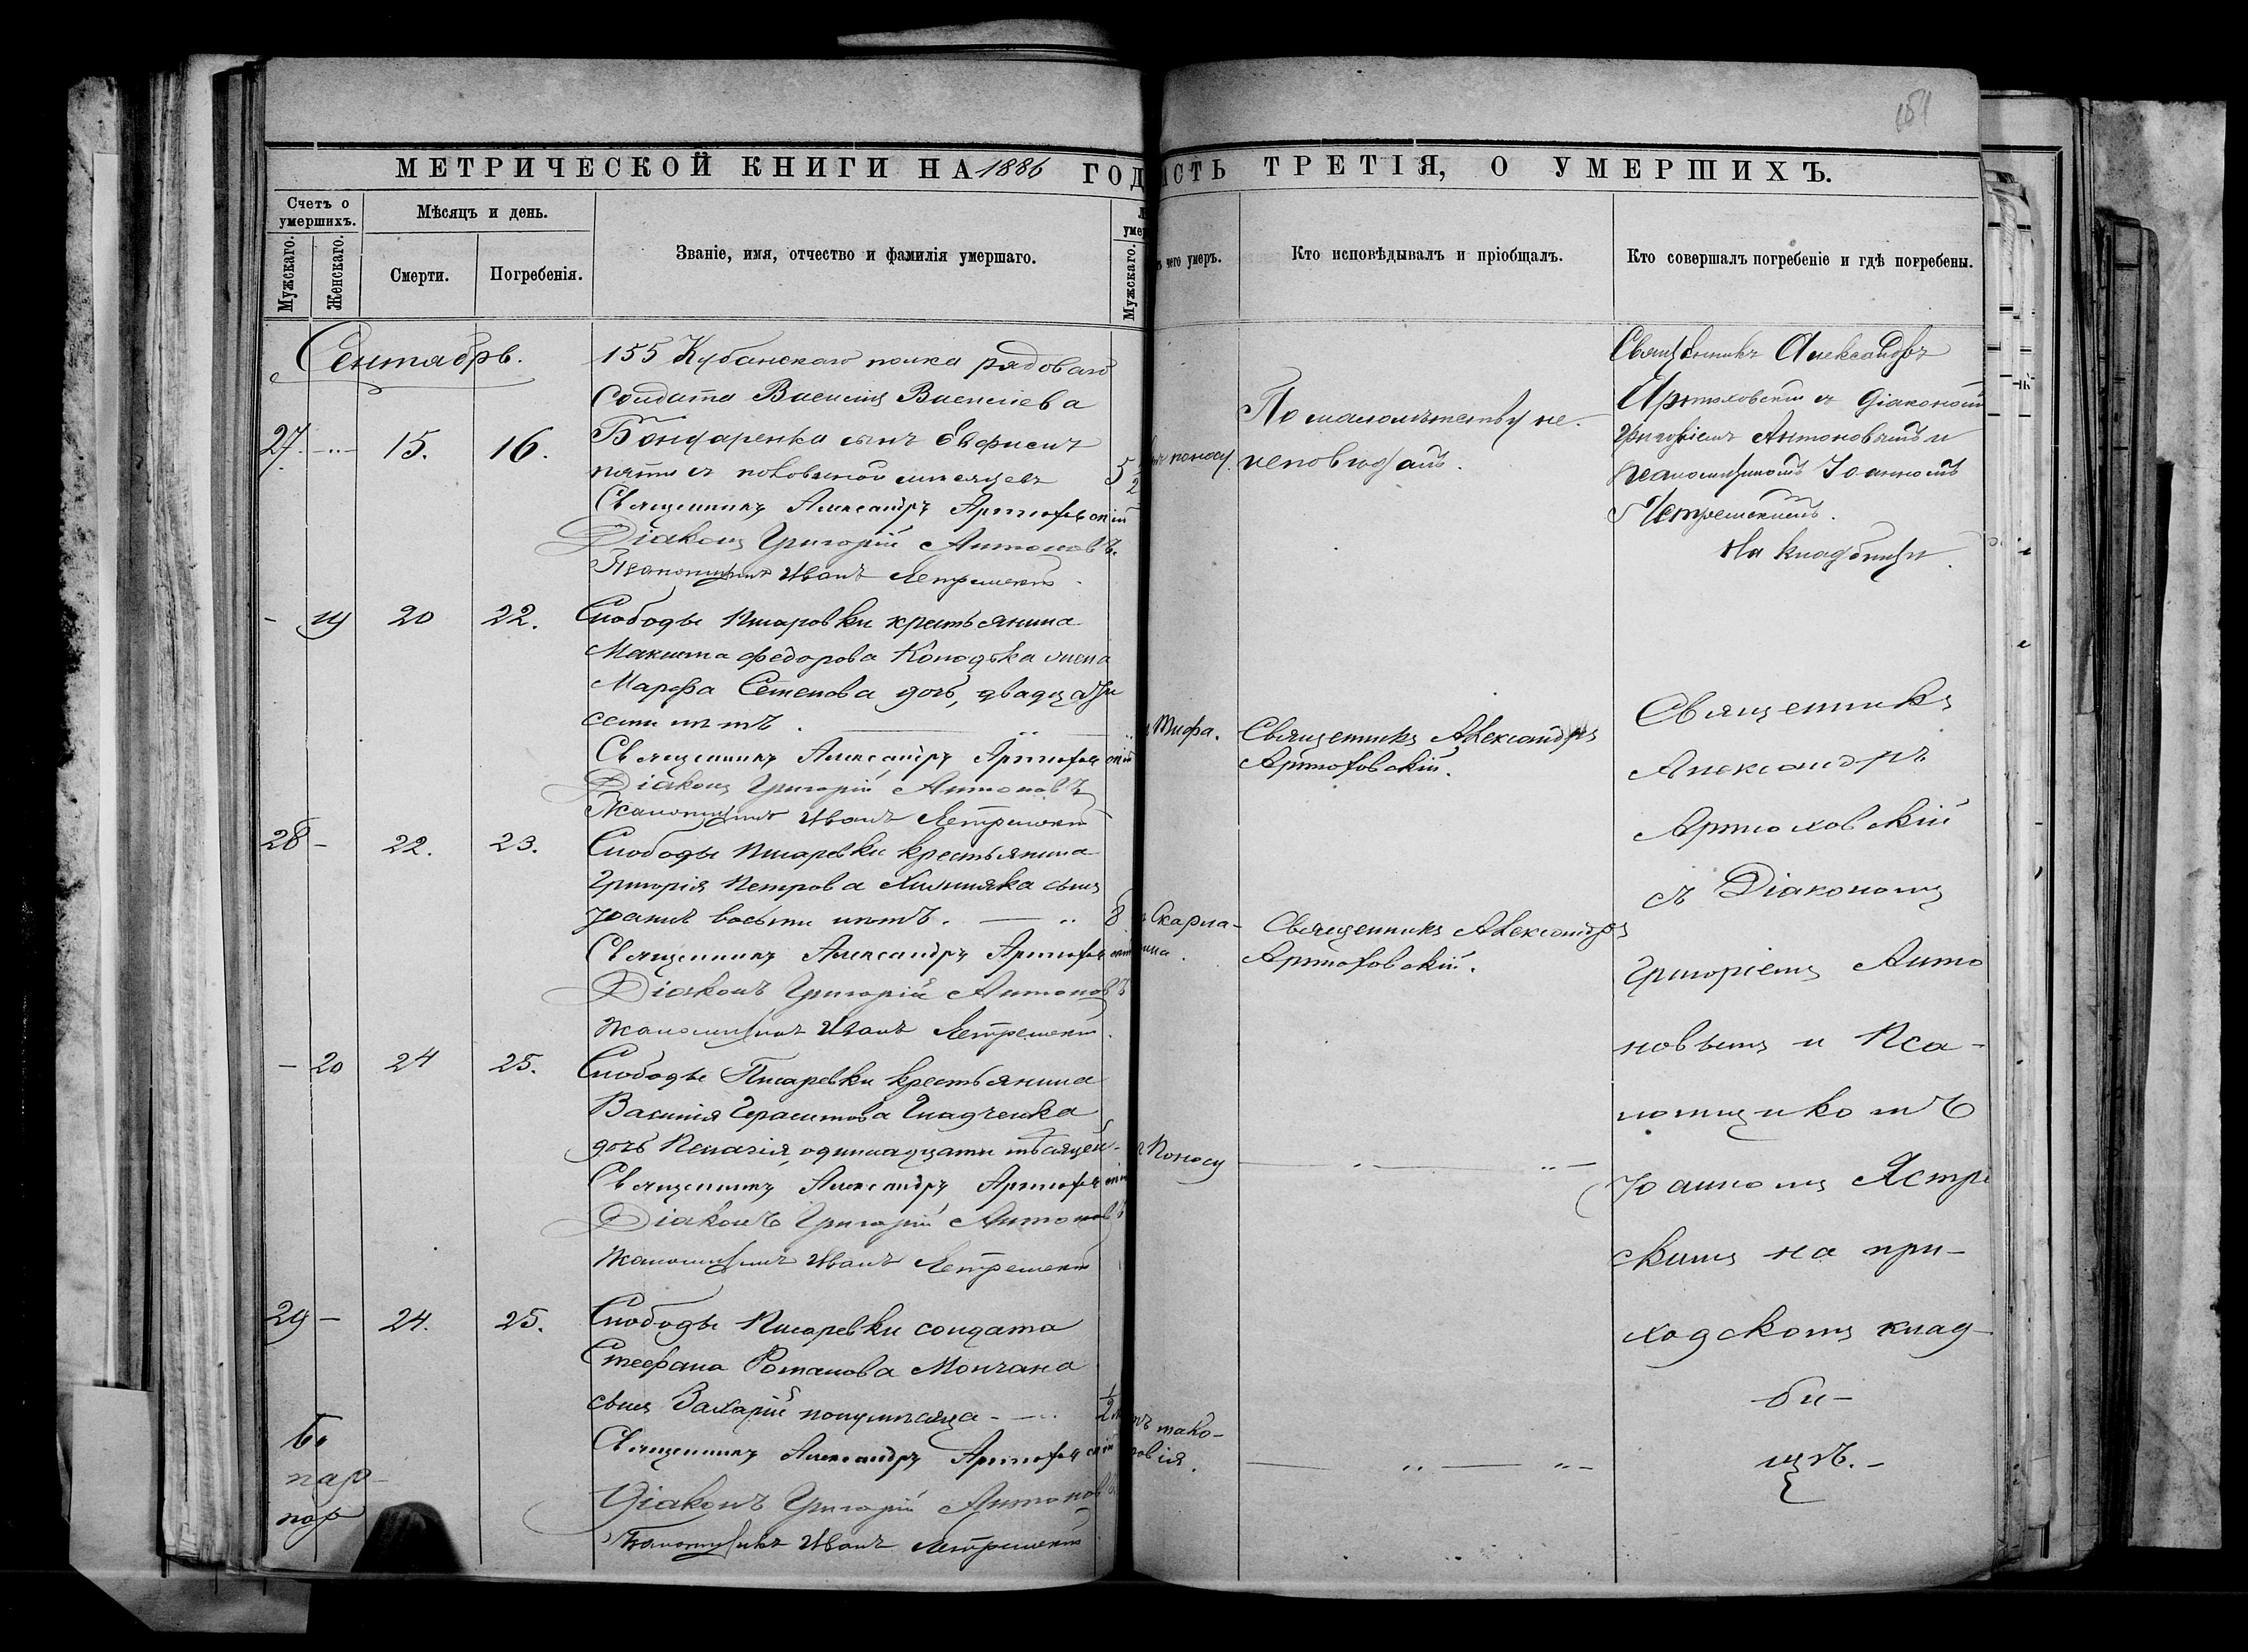 151
МЕТРИЧЕСКОЙ КНИГИ НА 1886 ГОД
СТЬ ТРЕТІЯ, О УМЕРШИХЪ.
Счетъ о умершихъ.
Мужскаго.
Женскаго.
Мѣсяцъ и день.
Смерти.
Погребенія.
Званіе, имя, отчество и фамилія умершаго.
Мужскаго.
чего умеръ.
Кто исповѣдывалъ и пріобщалъ.
Кто совершалъ погребеніе и гдѣ погребены.
Сентябрь.
155 Кубанскаго полка рядоваго
солдата Василія Васильева
27. 15. 16. Бондаренка сынъ
пяти съ половиной мѣсяцевъ 5 1/2
Священникъ Александръ Артюховскій
Діаконъ Григорій Антоновъ.
Псаломщикъ Иванъ Ястремскій
поносу.
По малолѣтству не
исповѣдалъ.
Священникъ Александръ
Артюховскій съ Діакономъ
Григоріемъ Антоновымъ и
псаломщикомъ Іоанномъ
Ястремскимъ.
На кладбищѣ.
- 19 20 22. Слободы Писаревки крестьянина
Федорова жена
Марфа Семенова дочь, двадцати
семи лѣтъ.
Священникъ Александръ Артюховскій
Діаконъ Григорій Антоновъ
Псаломщикъ Иванъ Ястремскій
Тифа.
Священникъ Александръ
Артюховскій.
28 - 22. 23. Слободы Писаревки крестьянина
Григорія Петрова сынъ
Іоаннъ восьми лѣтъ. 8
Священникъ Александръ Артюховскій
Діаконъ Григорій Антоновъ
Псаломщикъ Иванъ Ястремскій.
Скарла-
тина.
Священникъ Александръ
Артюховскій.
- 20 24 25. Слободы Писаревки крестьянина
Василія Герасимова Гладченка
дочь Пелагія, одиннадцати мѣсяцей
Священникъ Александръ Артюховскій
Діаконъ Григорій Антоновъ
Псаломщикъ Иванъ Ястремскій
Поносу
29 - 24. 25. Слободы Писаревки солдата
Стефана Романова Молчана
сынъ Захарій полумѣсяца 1/2
Священникъ Александръ Артюховскій
Діаконъ Григорій Антоновъ
Псаломщикъ Иванъ Ястремскій
Священникъ
Александръ
Артюховскій
съ Діакономъ
Григоріемъ Анто
новымъ и Пса-
ломщикомъ
Іоанномъ Ястре
скимъ на при-
ходскомъ клад-
би-
щѣ.